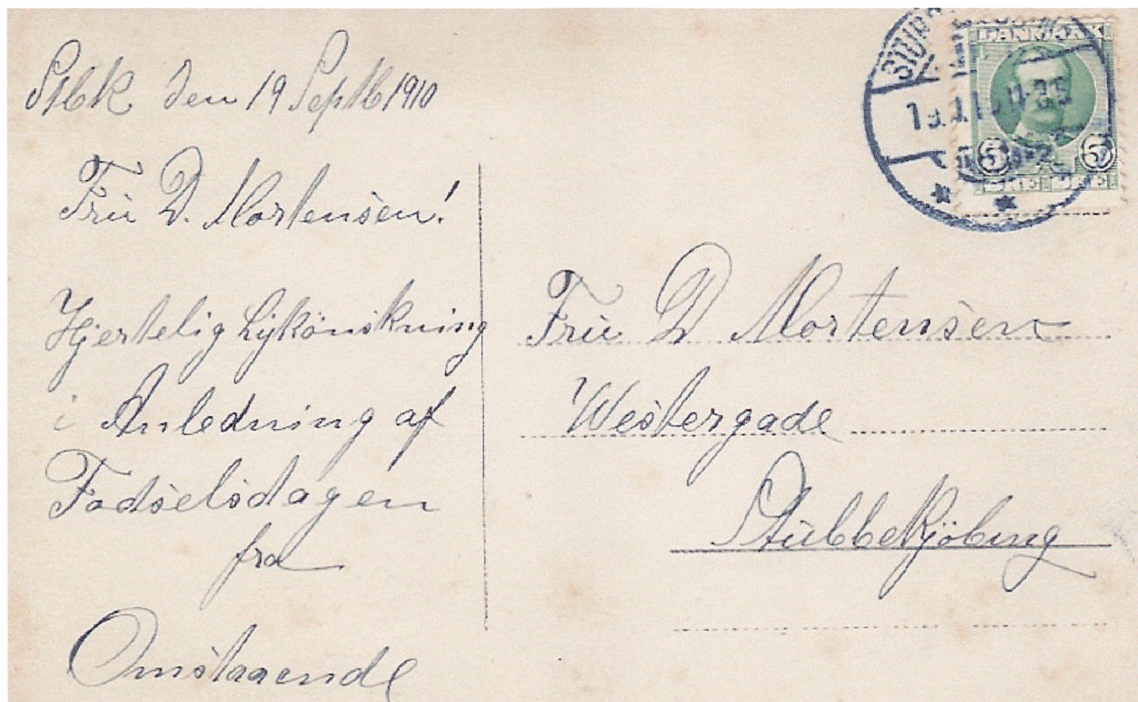 Stbk den 19 Septb 1910
Fru D. Mortensen!
Hjertelig Lykönskning
i Anledning af
Fødselsdagen
fra
Omstaaende
DANMARK
5 5
ØRE ØRE
Fru D Mortensen
Westergade
Stubbekjöbing